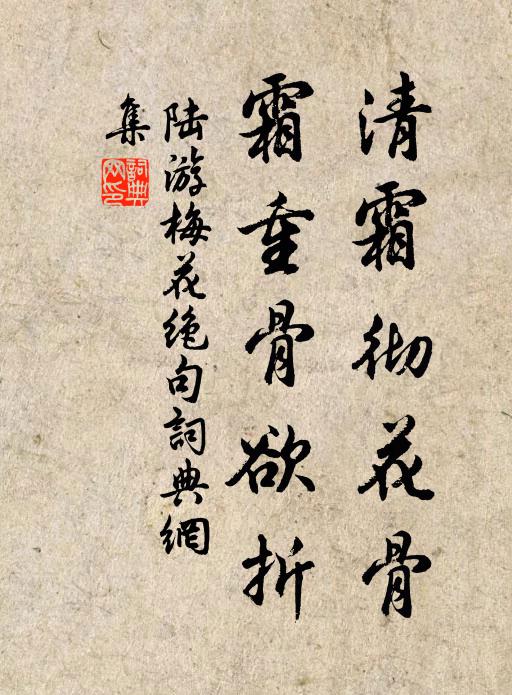 清霜彻花骨
霜重骨欲折
陆游梅花绝句詞典網
集
詞典网印